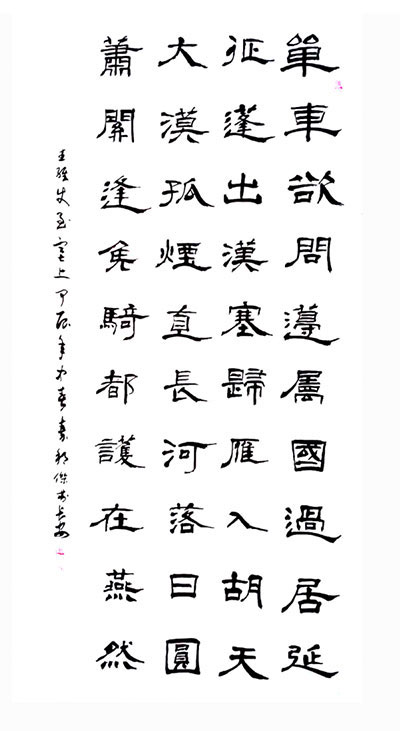 單車欲問邊屬國過居延
征蓬出漢塞歸雁入胡天
大漠孤煙直長河落日圓
蕭關逢矦騎都護在燕然
王維使至塞上 年 春 傑於長安